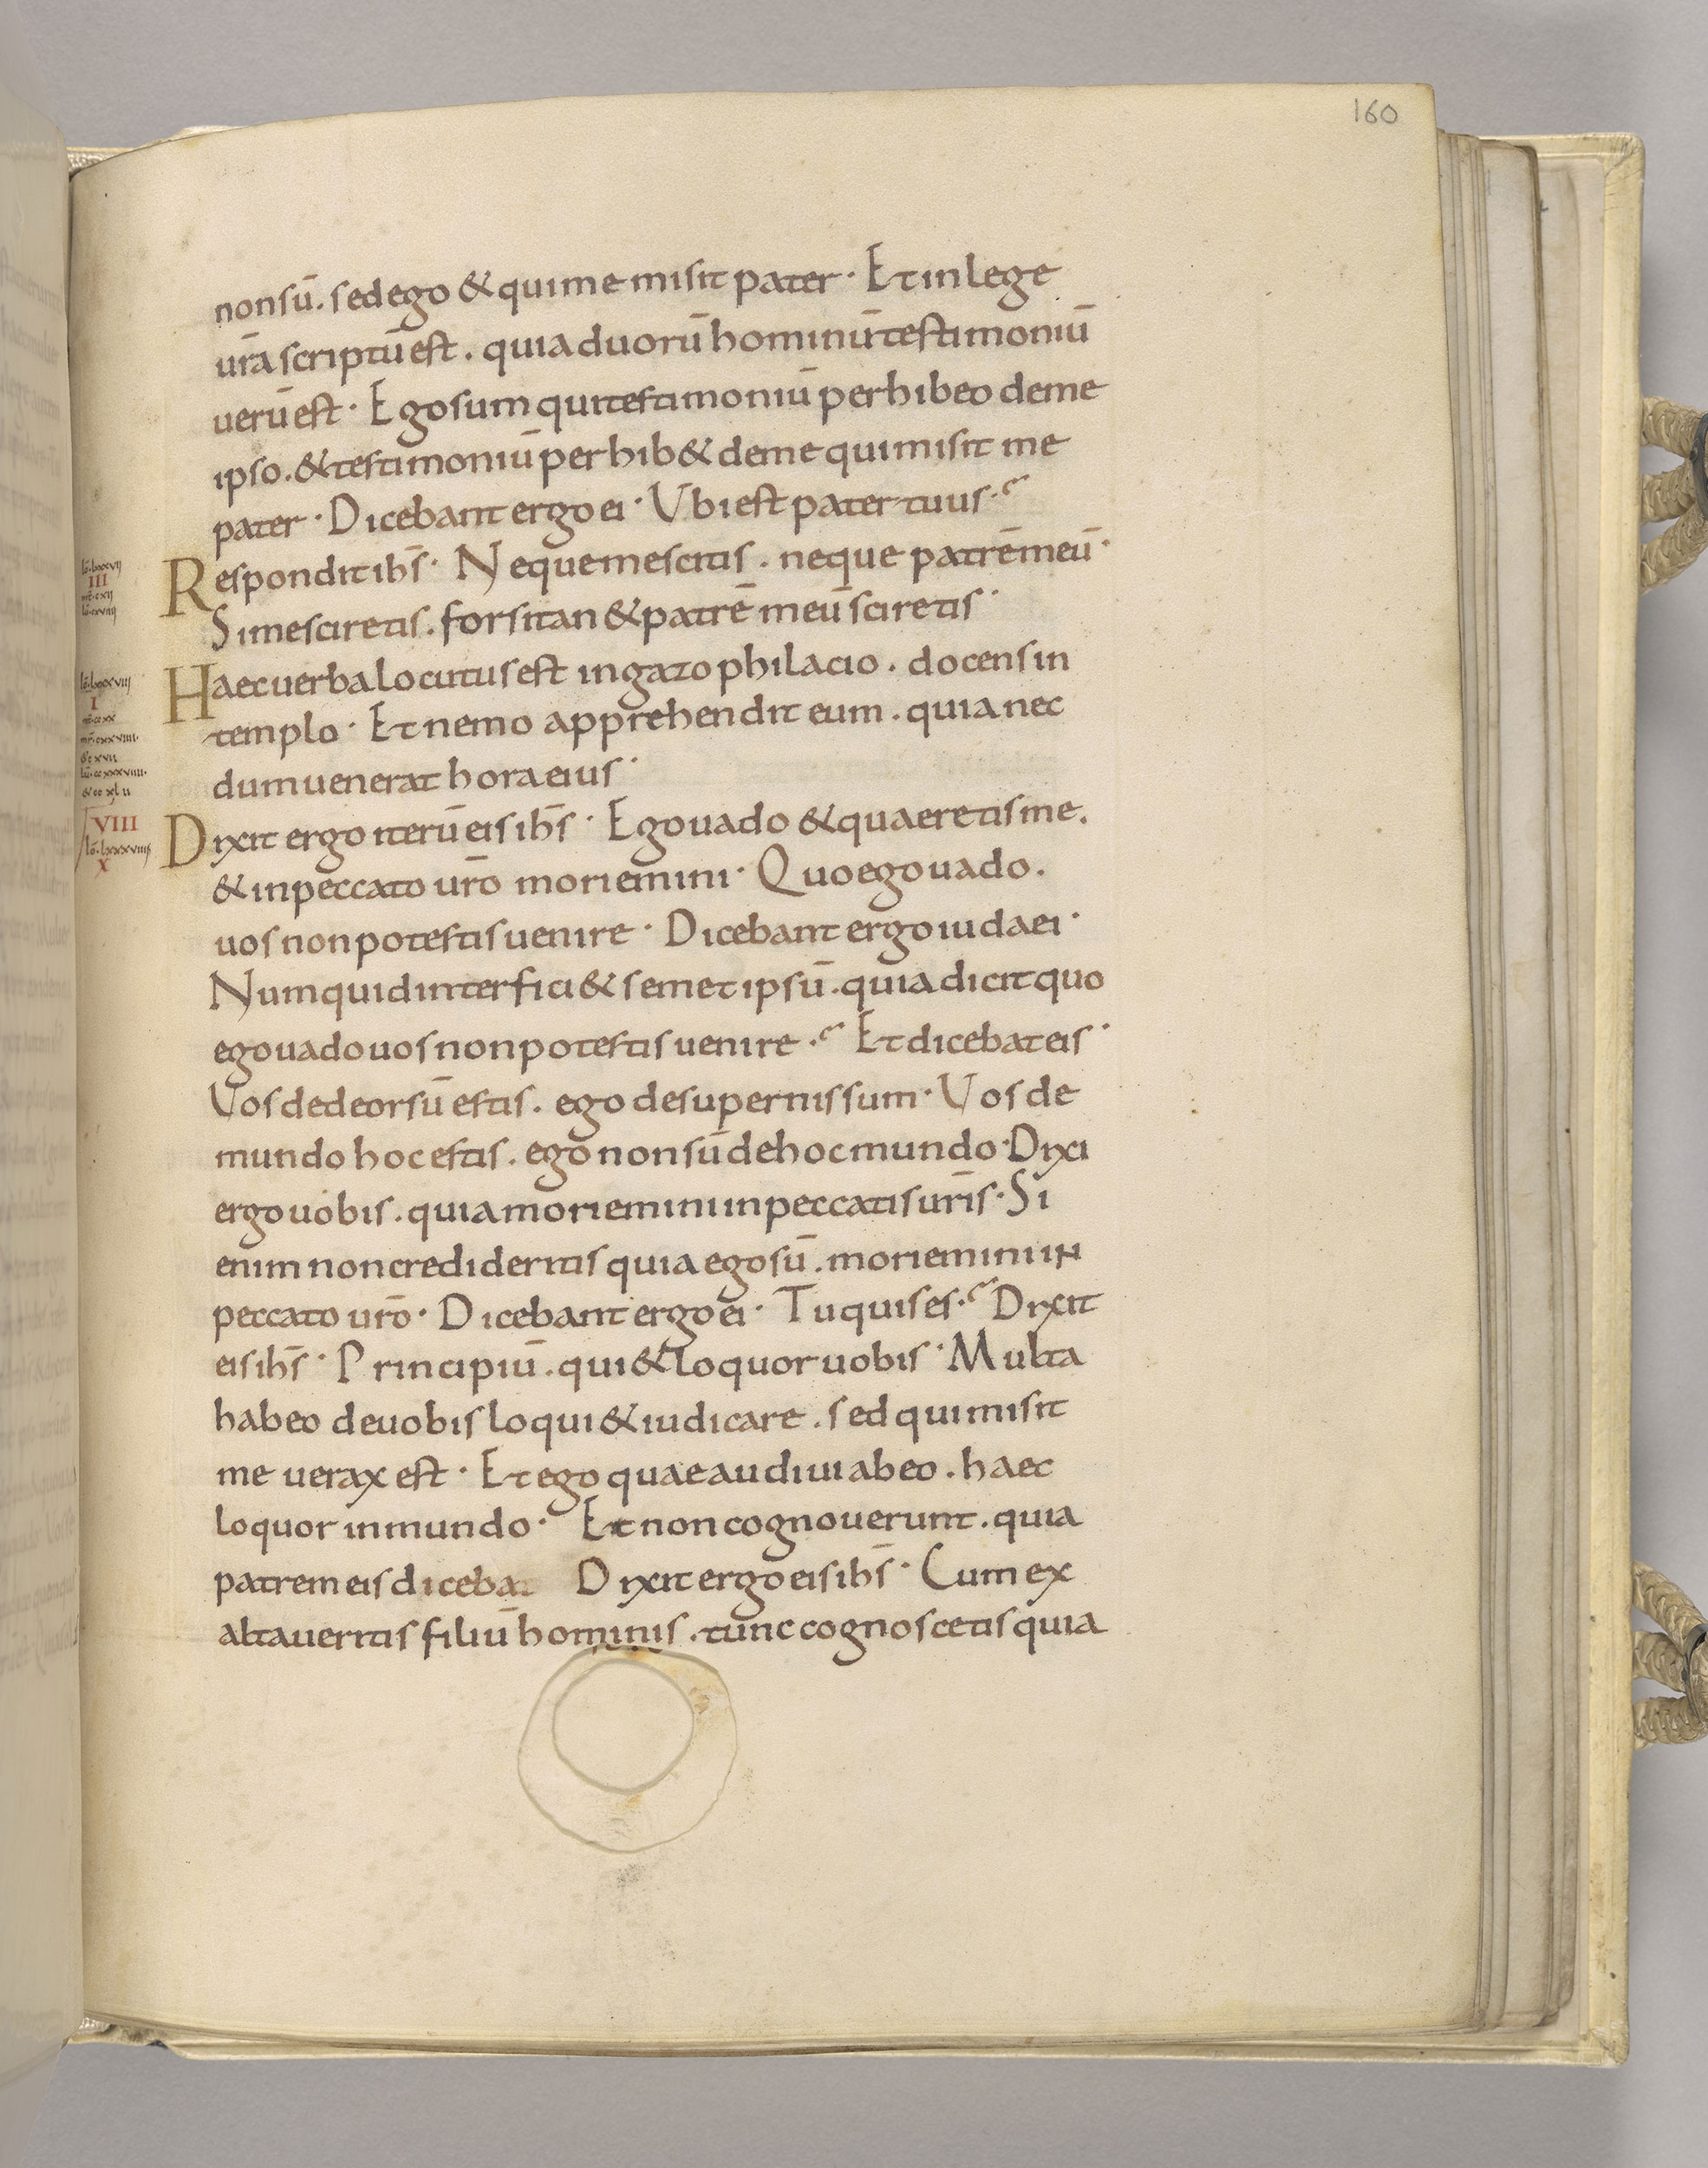 160
non sū. sed ego & qui me misit pater· Et in lege
ur̄a scriptū est. quia duorū hominū testimoniū
uerū est· Ego sum qui testimoniū perhibeo de me
ipso. & testimoniū perhib& de me qui misit me
pater· Dicebant ergo ei· Vbi est pater tuus·
Respondit ihs̄· Neque me scitis. neque patrē meū·
Si me sciretis. forsitan & patrē meū sciretis·
III
Haec uerba locutus est in gazophilacio. docens in
I
templo· Et nemo apprehendit eum. quia nec
dum uenerat hora eius·
VIII
Dixit ergo iterū eis ihs̄· Ego uado & quaeretis me.
X
& in peccato ur̄o moriemini· Quo ego uado.
uos non potestis uenire· Dicebant ergo iudaei·
Numquid interfici& semet ipsū. quia dicit quo
ego uado uos non potestis uenire· Et dicebat eis·
Vos de deorsū estis. ego de supernis sum· Vos de
mundo hoc estis. ego non sū de hoc mundo· Dixi
ergo uobis. quia moriemini in peccatis ur̄is· Si
enim non credideritis quia ego sū. moriemini in
peccato ur̄o· Dicebant ergo ei· Tu quis es· Dixit
eis ihs̄· Principiū. qui & loquor uobis· Multa
habeo de uobis loqui & iudicare. sed qui misit
me uerax est· Et ego quae audiui ab eo. haec
loquor in mundo· Et non cognouerunt. quia
patrem eis dicebat Dixit ergo eis ihs̄· Cum ex
altaueritis filiū hominis. tunc cognoscetis quia